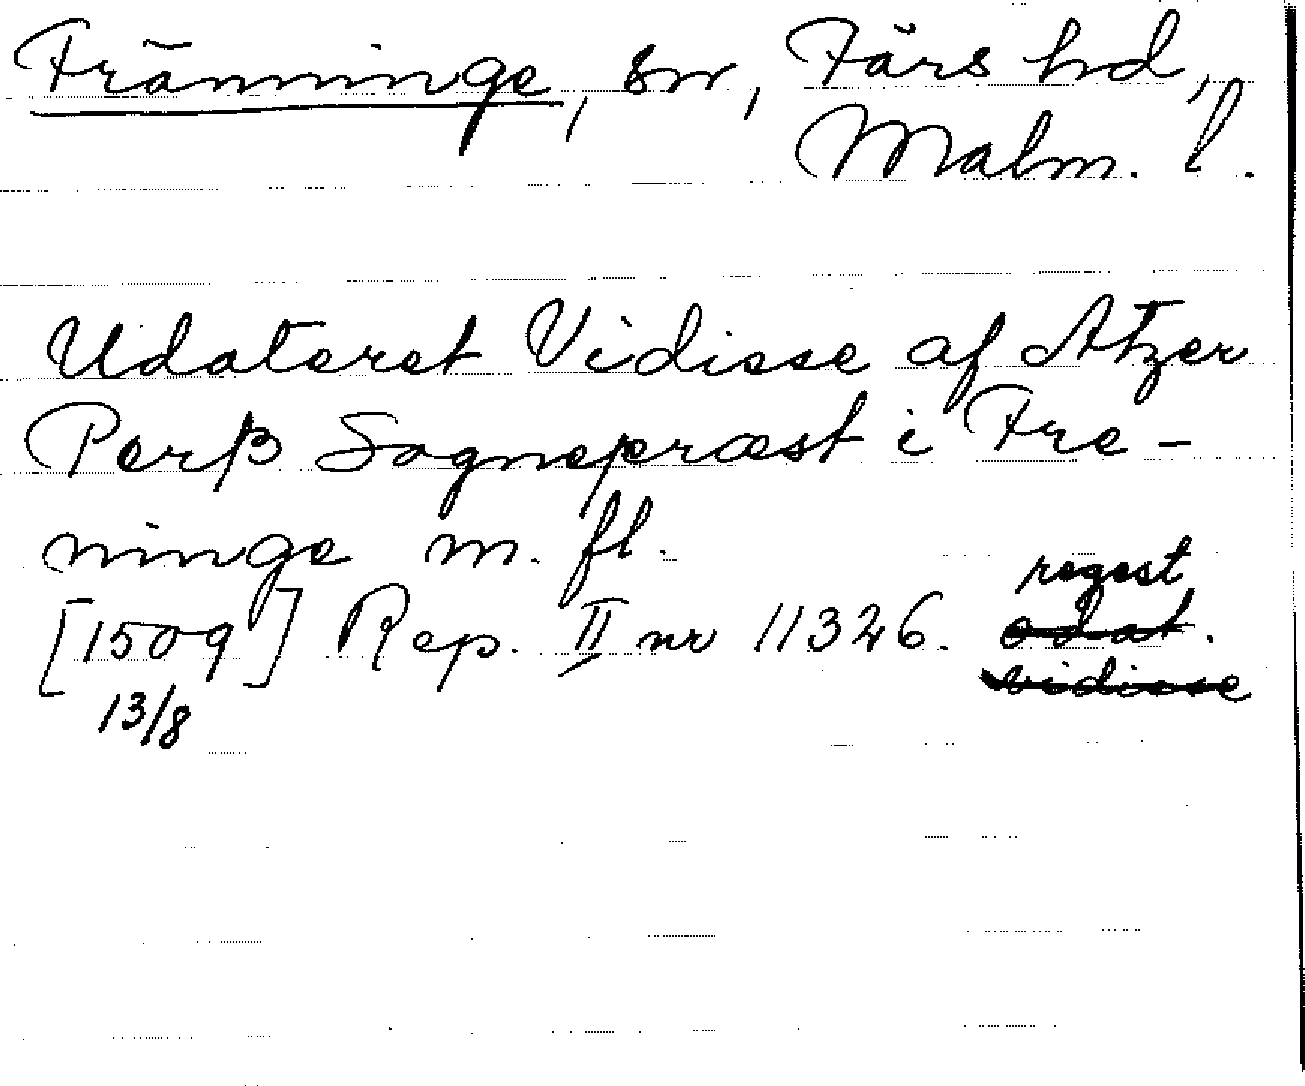 Fränninge, sn, Färs hd,
Malm. l.
Udateret Vidisse af Atzer
Perß Sognepræst i Fre-
ninge m. fl.
regest
[1509] Rep. II nr 11326. odat.
vidisse
13/8